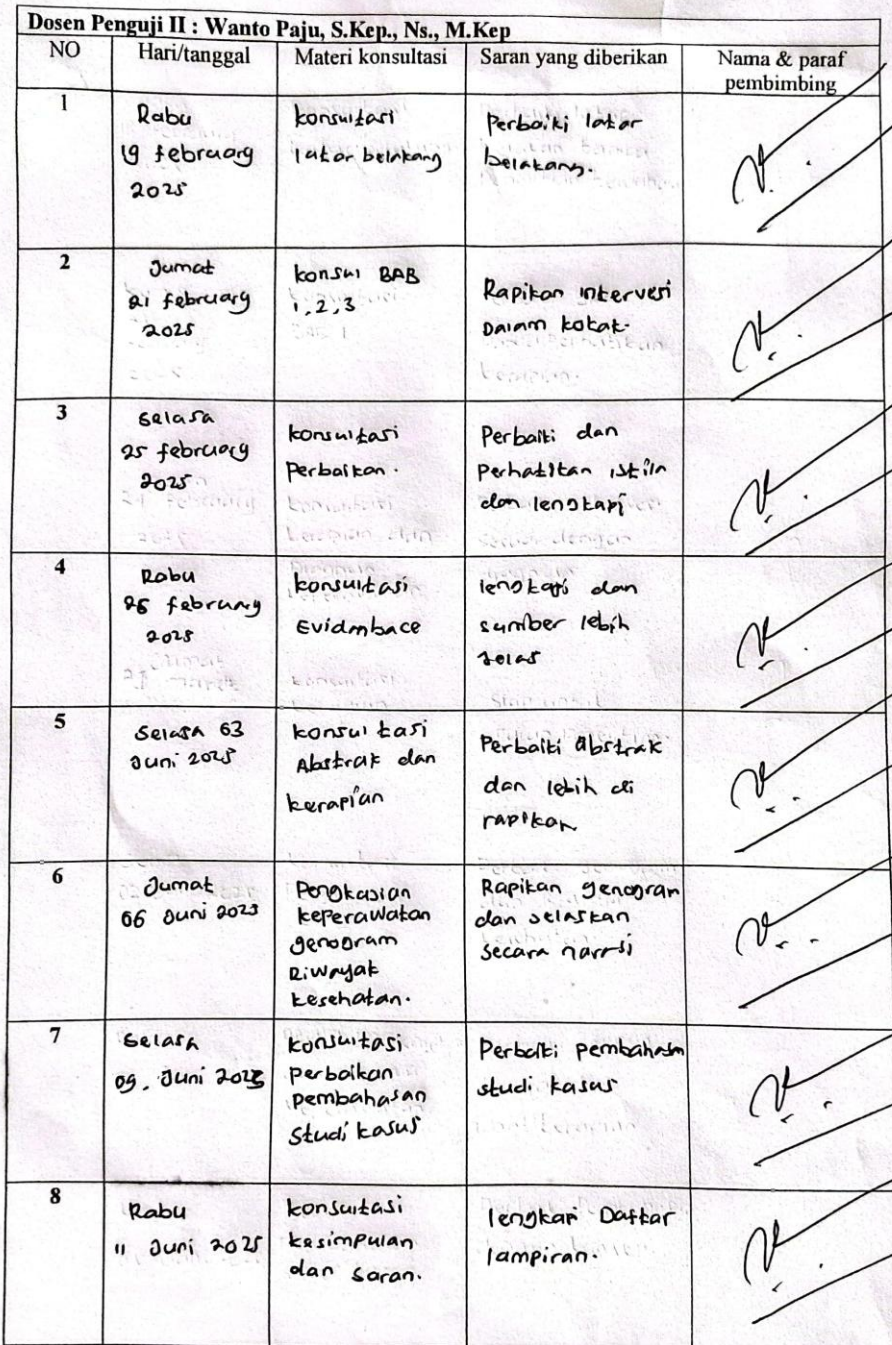 Dosen Penguji II : Wanto Paju, S.Kep., Ns., M.Kep
NO Hari/tanggal Materi konsultasi Saran yang diberikan Nama & paraf
pembimbing
1
Rabu
19 february
2025
konsultasi
latar belakang
Perbaiki latar
belakang.
2
Jumat
21 february
2025
konsul BAB
1, 2, 3
Rapikan intervesi
Dalam kotak.
3
Selasa
25 february
2025
konsultasi
Perbaikan.
Perbaiki dan
Perhatikan
dan lengkapi
4
Rabu
26 february
2025
konsultasi
lengkapi dan
sumber lebih
jelas
5
Selasa 03
Juni 2025
konsultasi
Abstrak dan
kerapian
Perbaiki abstrak
dan lebih di
rapikan
6
Jumat
06 Juni
Pengkajian
keperawatan
genogram
Riwayat
kesehatan.
Rapikan genogram
dan jelaskan
secara narasi
7
Selasa
09, Juni
konsultasi
perbaikan
pembahasan
studi kasus
Perbaiki pembahasan
studi kasus
8
Rabu
11 Juni 2025
konsultasi
kesimpulan
dan saran.
lengkapi Daftar
lampiran.